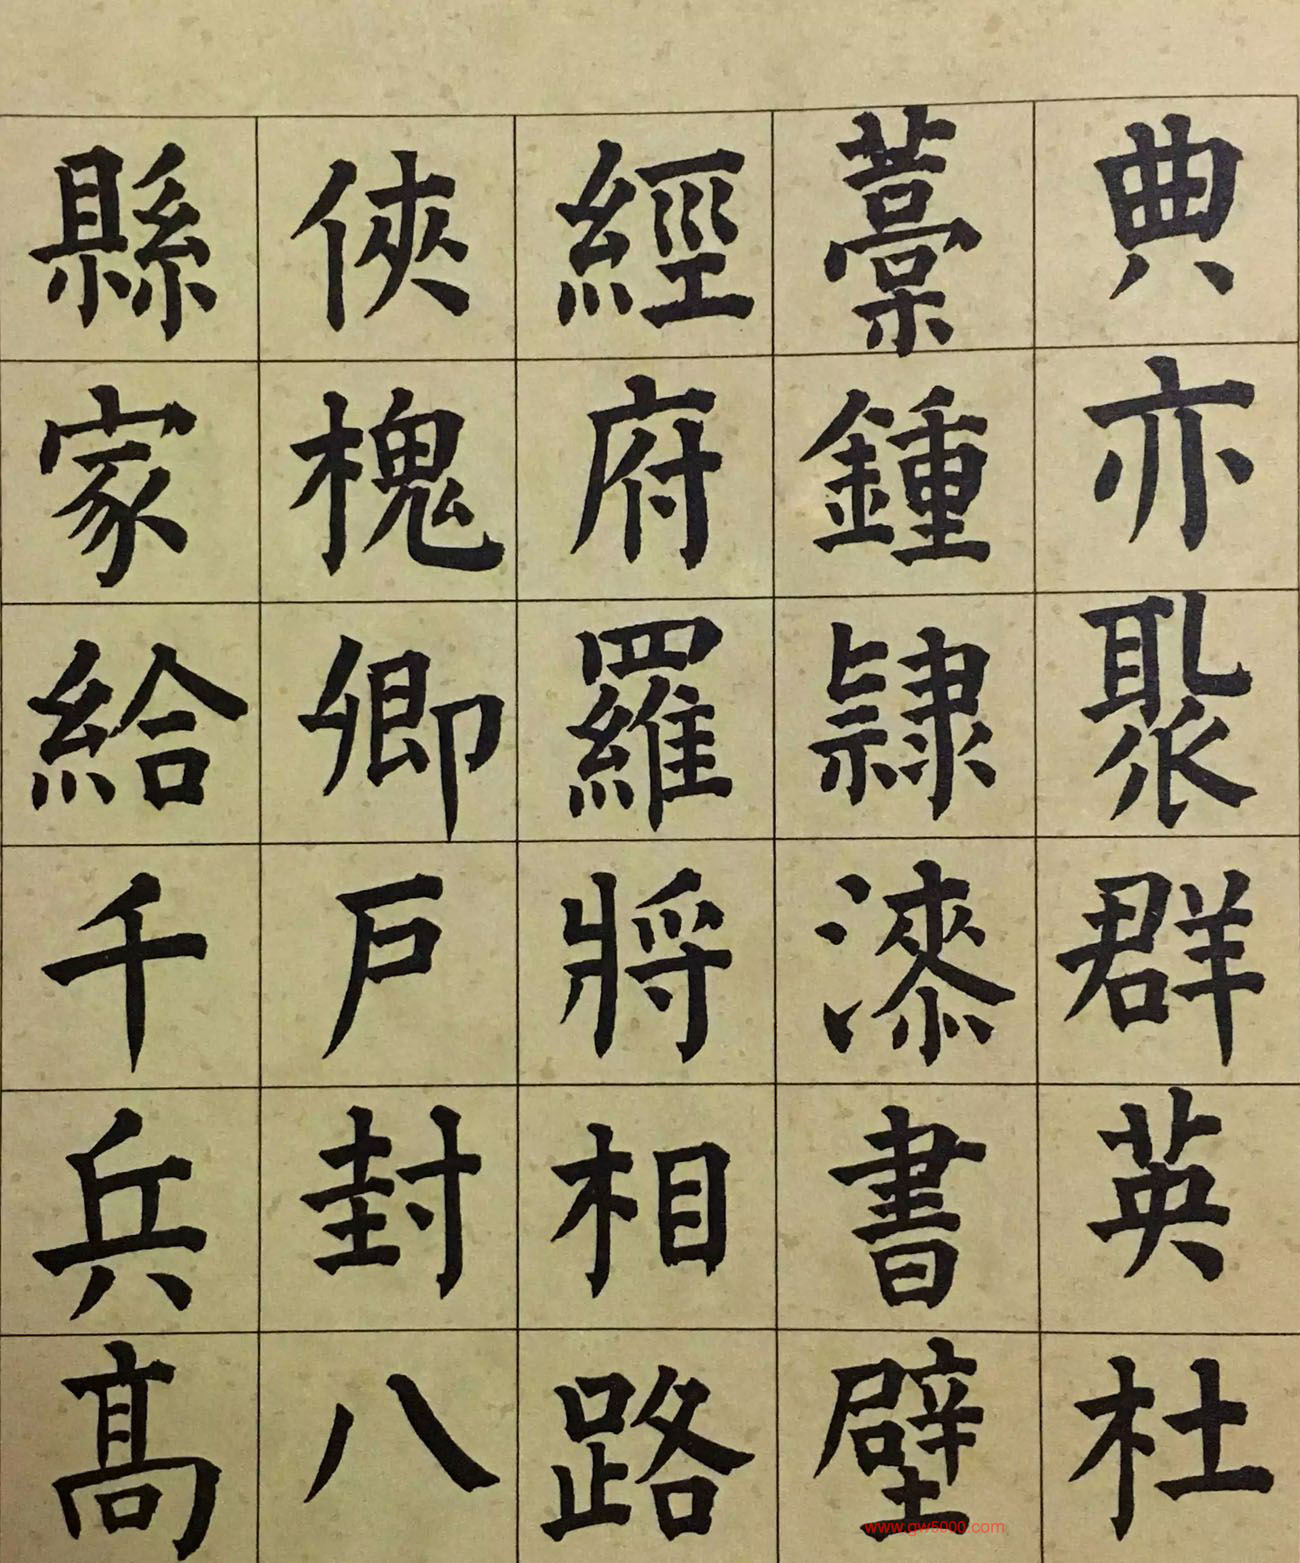 典亦聚群英杜
藁鍾隷漆書壁
經府羅將相路
俠槐卿戶封八
縣家給千兵高
www.gw5000.com